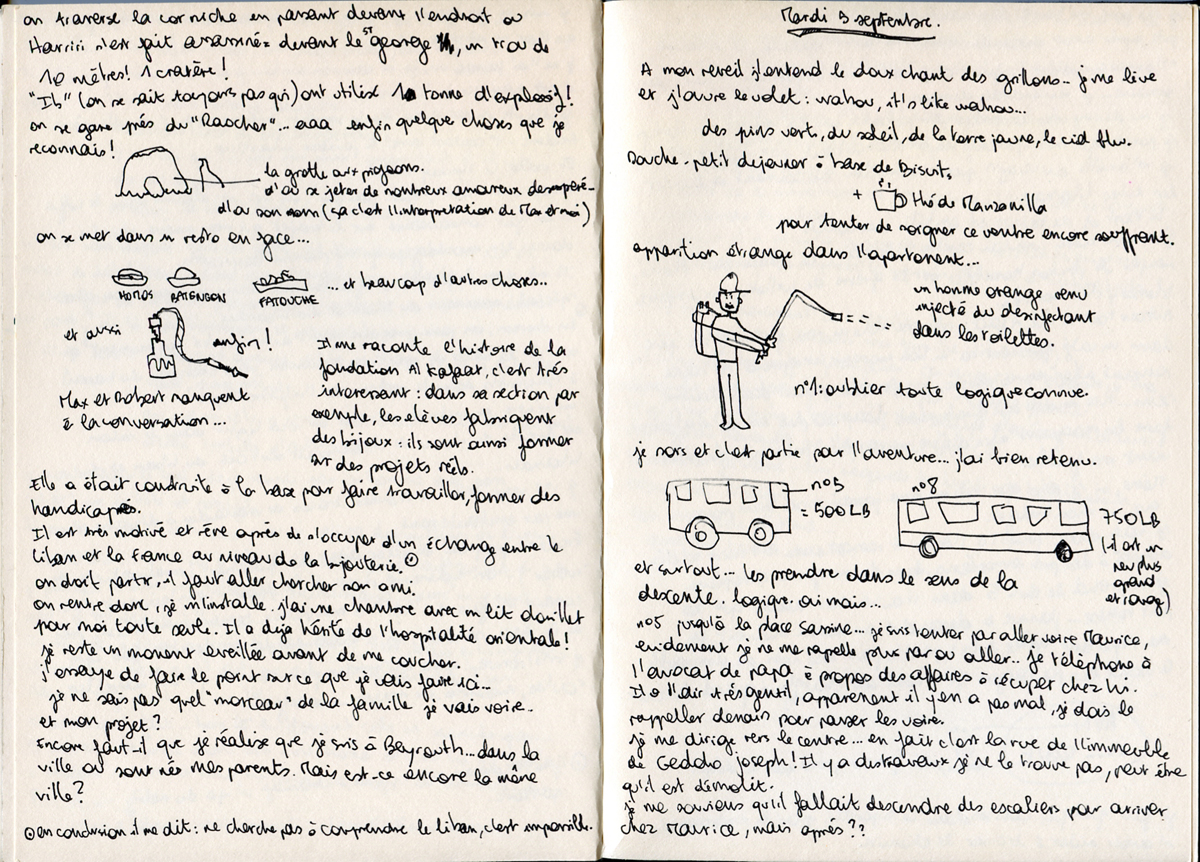 on traverse la corniche en passant devant l'endroit ou
Harriri s'est fait assassiné = devant le ST george, un trou de
10 mètres! 1 cratère!
"Ils" (on ne sait toujours pas qui) ont utilisé 1 tonne d'explosif!
on se gare près du "Raocher"... aaa enfin quelque choses que je
reconnais!
la grotte aux pigeons.
d'où se jeter de nombreux amoureux desespéré-
d'ou son nom (sa c'est l'interpretation de Max et moi)
on se met dans un resto en face...
HOMOS BATENGEN FATOUCHE ... et beaucoup d'autres choses..
et aussi enfin!
Max et Robert manquent
à la conversation...
Il me raconte l'histoire de la
fondation Al Kafaat, c'est très
interessant : dans sa section par
exemple, les elèves fabriquent
des bijoux : ils sont ainsi former
sur des projets réels.
Elle a était construite à la base pour faire travailler, former des
handicapés.
Il est très motivé et rêve après de s'occuper d'un échange entre le
Liban et la France au niveau de la bijouterie.
on doit partir, il faut aller chercher son ami.
on rentre donc, je m'installe. j'ai une chambre avec un lit douillet
pour moi toute seule. Il a déja hérité de l'hospitalité orientale!
je reste un moment eveillée avant de me coucher.
j'essaye de faire le point sur ce que je vais faire ici...
je ne sais pas quel "morceau" de la famille je vais voire..
et mon projet?
Encore faut-il que je réalise que je suis à Beyrouth... dans la
ville ou sont nés mes parents. Mais est-ce encore la même
ville?
en conclusion il me dit : ne cherche pas à comprendre le liban, c'est impossible.
Mardi 5 septembre.
A mon reveil j'entend le doux chant des grillons.. je me live
et j'ouvre le volet : wahou, it's like wahou...
des pins verts, du soleil, de la terre jaune, le ciel bleu.
Douche - petit dejeuner à base de Biscuits,
+ thé de Manzanilla
pour tenter de soigner ce ventre encore souffrant.
apparition étrange dans l'apartement...
un homme orange venu
injecté du desinfectant
dans les toilettes.
n°1: oublier toute logique connue.
je sors et c'est partie pour l'aventure... j'ai bien retenu.
no5
= 500 LB
no8
750 LB
(il est un
peu plus
grand
et rouge)
et surtout... les prendre dans le sens de la
descente. logique. oui mais...
no5 jusqu'à la place Sassine... je suis tenter par aller voire Maurice,
evidement je ne me rapelle plus par ou aller.. je téléphone à
l'avocat de papa à propos des affaires à récuper chez lui.
Il a l'air très gentil, apparement il y'en a pas mal, je dois le
rappeller demain pour passer les voire.
je me dirige vers le centre... en fait c'est la rue de l'immeuble
de Geddo joseph! Il y a des travaux je ne le trouve pas, peut être
qu'il est démolit.
je me souviens qu'il fallait descendre des escaliers pour arriver
chez Maurice, mais après??